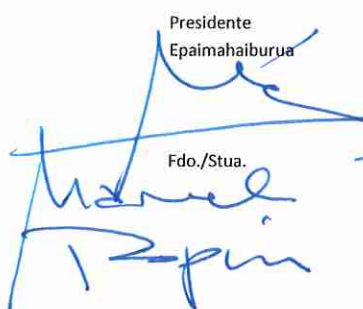 Presidente
Epaimahaiburua
Fdo./Stua.
Manuel